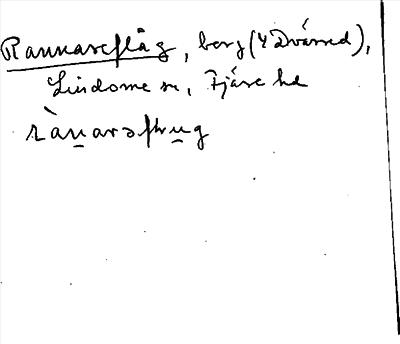 Rannareflåg, berg (4 Dvärred),
Lindome sn, Fjäre hd
ràn̲arəflu̲g